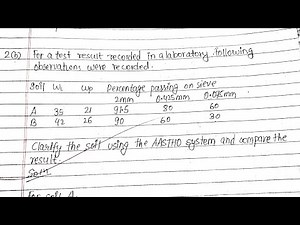 2(b) For a test result recorded in a laboratory following
observations were recorded.
Soil WL Wp Percentage passing on sieve
2mm 0.425mm 0.075mm
A 35 21 95 80 60
B 42 26 90 60 30
Clarify the soil using the AASTHO system and compare the
result.
Soln
For soil A